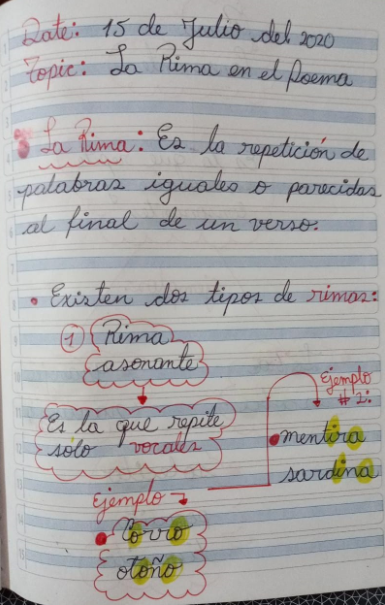 Date: 15 de Julio del 2020
Topic: La Rima en el Poema
La Rima: Es la repetición de
palabras iguales o parecidas
al final de un verso.
• Existen dos tipos de rimas:
1 Rima
asonante
Es la que repite
sólo vocales
Ejemplo
# 2:
• mentira
sardina
Ejemplo
• Corro
otoño